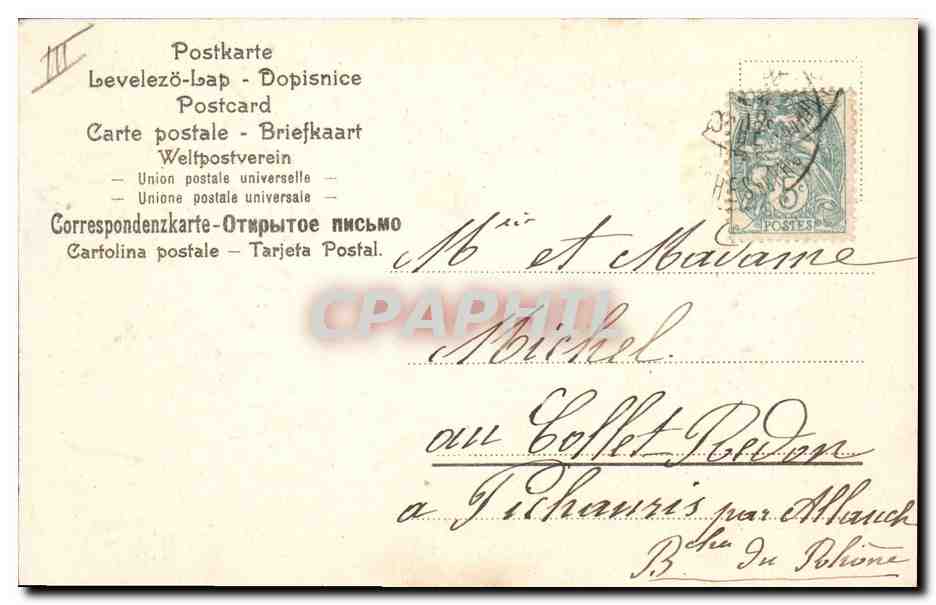 III
Postkarte
Levelező-Lap - Dopisnice
Postcard
Carte postale - Briefkaart
Weltpostverein
— Union postale universelle —
— Unione postale universale —
Correspondenzkarte - Открытое письмо
Cartolina postale — Tarjeta Postal.
5c
POSTES
Mr et Madame
CPAPHIL
Michel.
au Collet Redon
a Pichauris par Allauch
Bches du Rhône